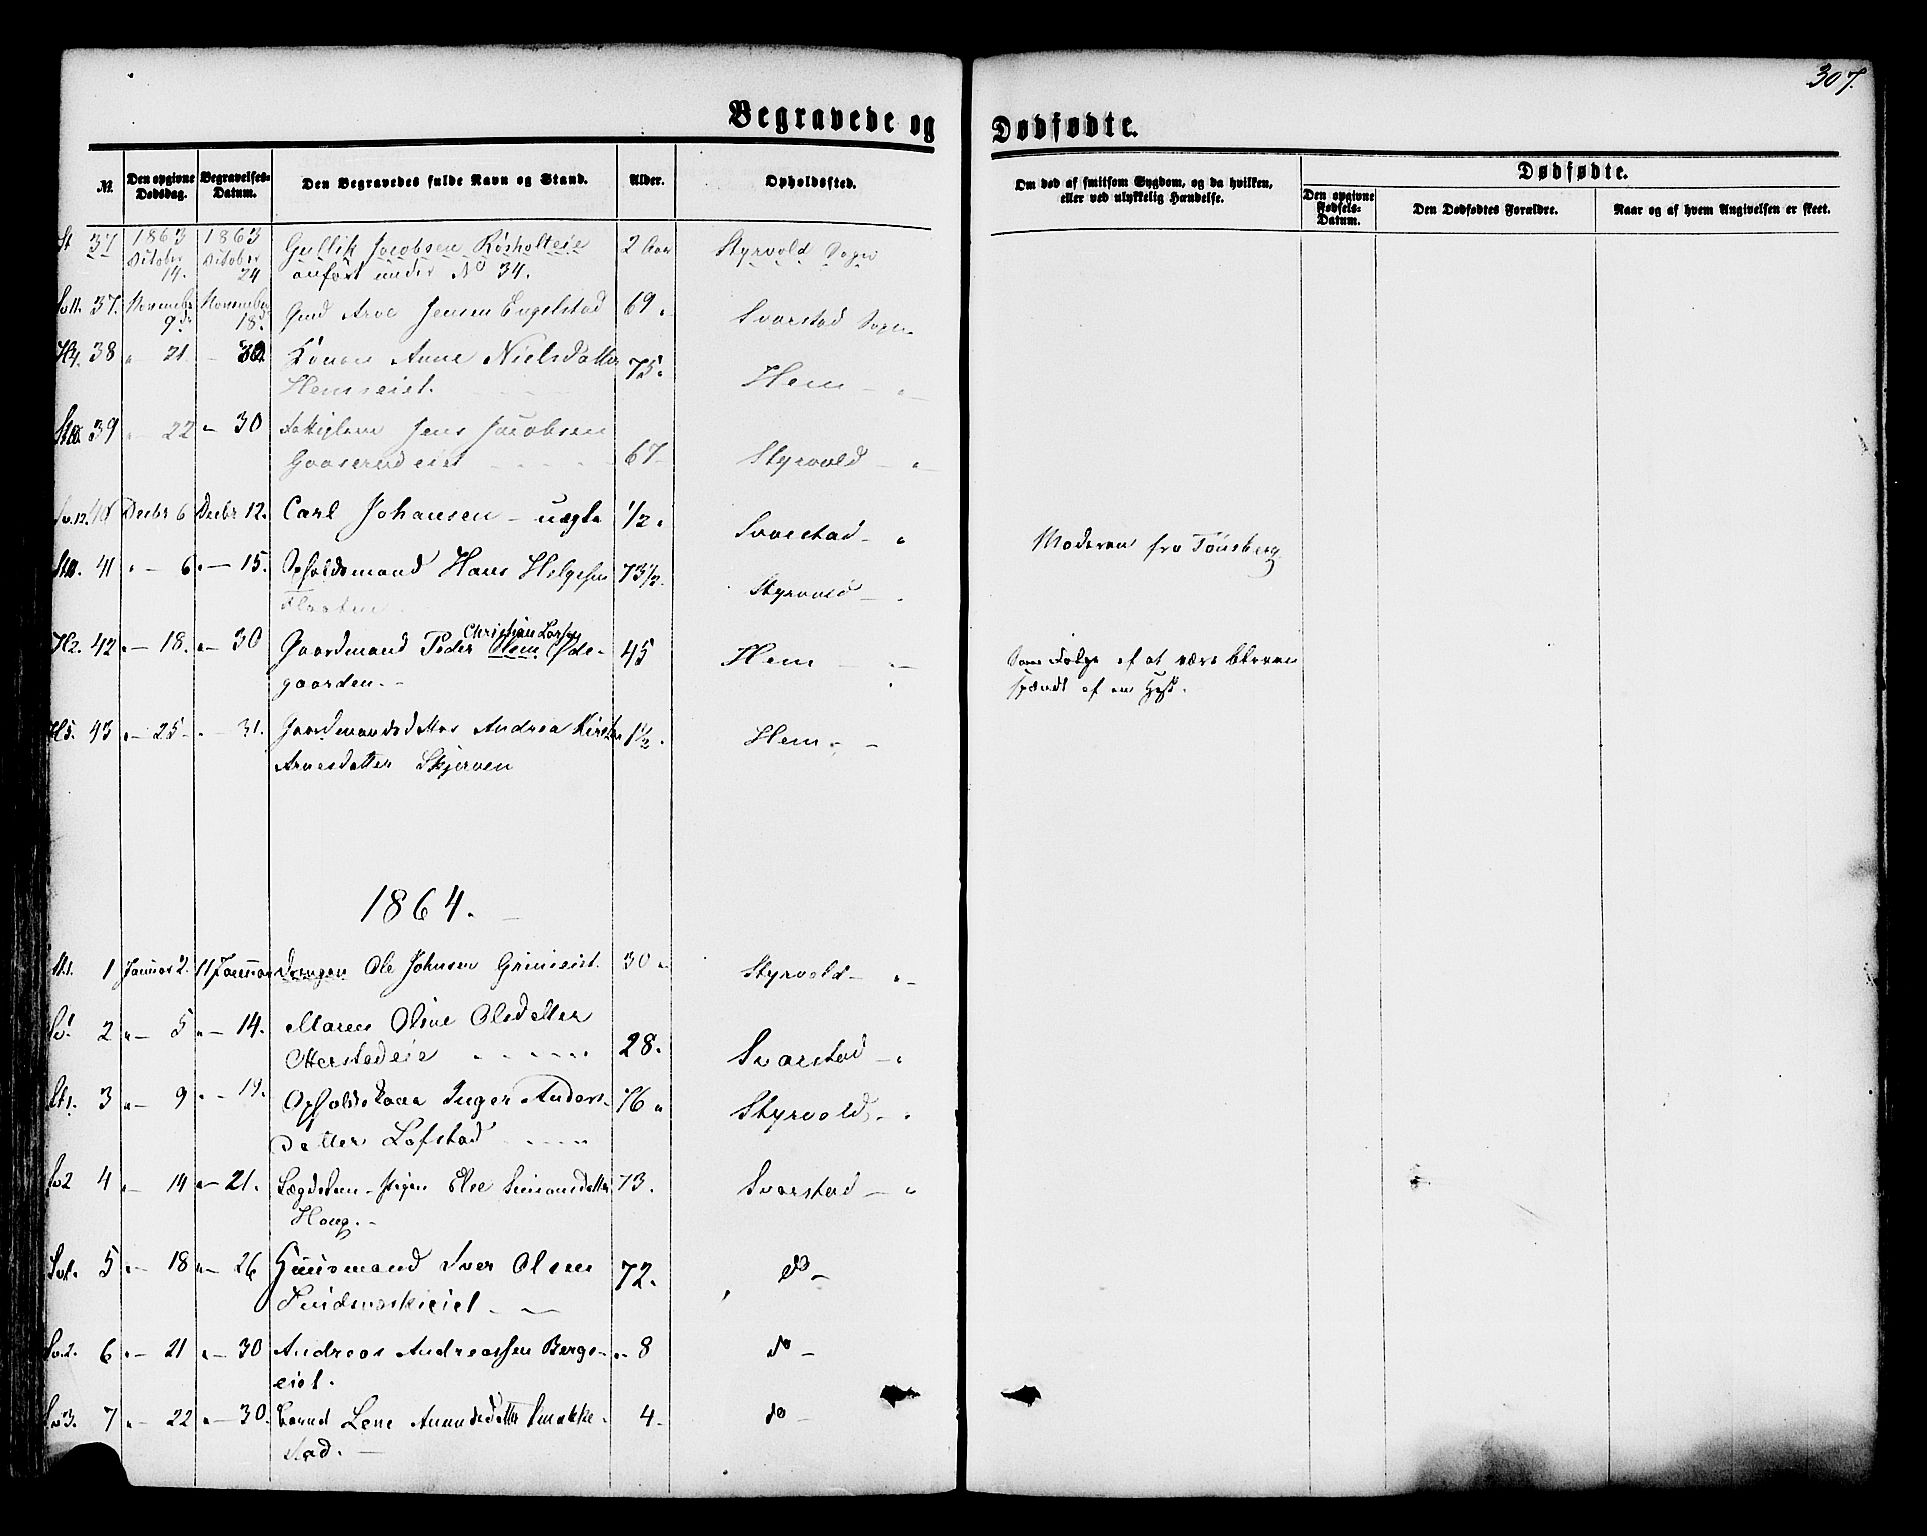 307.
Begravede og Dødfødte.
№ Den opgivne Dødsdag. Begravelses-Datum. Den Begravedes fulde Navn og Stand. Alder. Opholdssted. Om død af smitsom Sygdom, og da hvilken, eller ved ulykkelig Hændelse. Dødfødte.
Den opgivne Fødsels-Datum. Den Dødfødtes Forældre. Naar og af hvem Angivelsen er skeet.
St 37 1863 October 14. 1863 October 24 Gullik Jacobsen Rösholteie 2 Aar Styrvold Sogn
anfört under No 34.
Sv11. 37. November 9de November 18d. Gmd Arve Jensen Engelstad 69 " Svarstad Sogn
H4. 38 " 21 — 30. Konen Anne Nielsdatter 75. Hem — "
Hemseiet.
39 " 22 " — 30 Jens Jacobsen
67 Styrvold — "
Sv.12. 40 Decbr 6 Decbr 12. Carl Johansen — uægte 1/2 " Svarstad — " Moderen fra Tönsberg
41 " — 6 " — 15. Opholdsmand Hans Helgesen 73 1/2. Styrvold — "
Flaaten
H2. 42 " — 18. " — 30 Gaardmand Peder Christian Larsen Hem Øde- 45 Hem — " Som Følge af at være bleven
gaarden. — spændt af en Hest.
H5. 43 " — 25 — " — 31. Gaardmandsdatter Andrea Kirstine 1 1/2. Hem — "
Arvesdatter Skjerven
1864. —
St1. 1 Januar 2. 11 Januar Drengen Ole Johnsen Grimseiet. 30 " Styrvold — "
Sv1. 2 " — 5 " — 14. Maren Oline Olsdatter
28. Svarstad — "
St2. 3 " — 9 " — 19. Opholdskone Inger Anders- 76 " Styrvold — "
datter Lofstad
Sv2 4 " — 14 " — 21. Lægdslem — Pigen Else Simonsdatter 73. Svarstad — "
Houg. —
5 " — 18 " — 26 Huusmand Iver Olsen 72. do —
Sv2. 6 " — 21 " — 30 Andreas Andreassen Bergs- " 8 do —
eiet.
Sv3. 7 " — 22 " — 30. Barnet Lene Amundsdatter Smukke- 4 — do —
stad. —